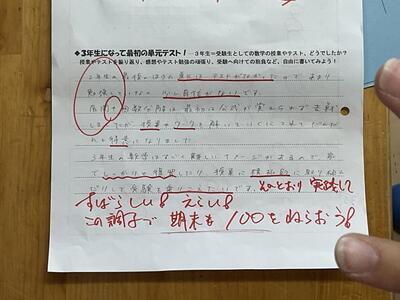 ◆3年生になって最初の単元テスト!―3年生=受験生としての数学の授業やテスト、どうでしたか?
授業やテストを振り返り、感想やテスト勉強の頑張り、受験へ向けての抱負など、自由に書いてみよう!
2年生の
テストがなかったので、あまり
勉強していなく、少し自信がないです。
展開や因数分解は最初は公式が覚えられず苦戦
しましたが、授業やワークを解いていくにつれてだんだ
んと得意になりました。
3年生の数学はすごく難しいイメージがあるので
しっかりと復習したり、授業に積極的に取り組ん
だりして受験を乗りこえたいです。
そのとおり 実践して
すばらしい!! えらい!!
この調子で 期末も 100をねらおう!!